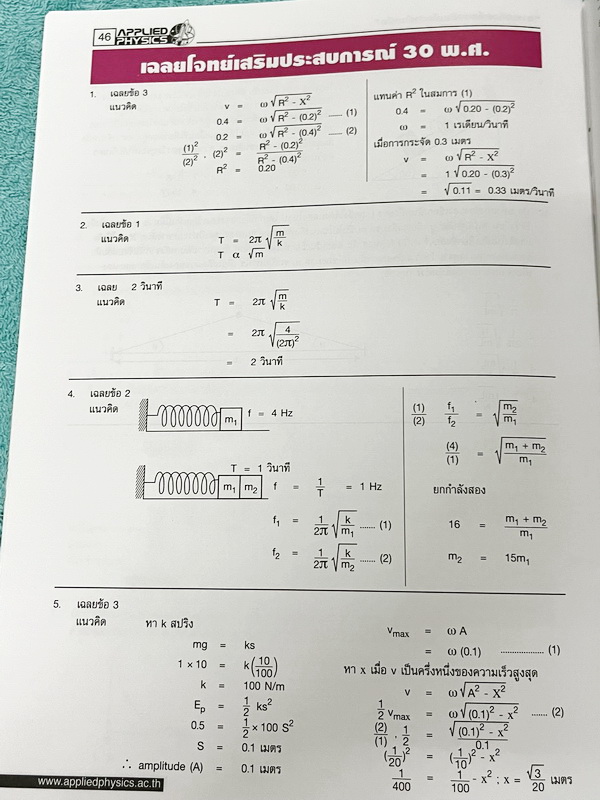 46 APPLIED PHYSICS
เฉลยโจทย์เสริมประสบการณ์ 30 พ.ศ.
1. เฉลยข้อ 3
แนวคิด v = ω √(R² - X²)
0.4 = ω √(R² - (0.2)²) ..... (1)
0.2 = ω √(R² - (0.4)²) ..... (2)
(1)²/(2)² , (2)² = (R² - (0.2)²)/(R² - (0.4)²)
R² = 0.20
แทนค่า R² ในสมการ (1)
0.4 = ω √(0.20 - (0.2)²)
ω = 1 เรเดียน/วินาที
เมื่อการกระจัด 0.3 เมตร
v = ω √(R² - X²)
= 1 √(0.20 - (0.3)²)
= √0.11 = 0.33 เมตร/วินาที
2. เฉลยข้อ 1
แนวคิด T = 2π √(m/k)
T α √m
3. เฉลย 2 วินาที
แนวคิด T = 2π √(m/k)
= 2π √(4/(2π)²)
= 2 วินาที
4. เฉลยข้อ 2
แนวคิด m₁ f = 4 Hz
T = 1 วินาที
m₁ m₂ f = 1/T = 1 Hz
f₁ = 1/2π √(k/m₁) ...... (1)
f₂ = 1/2π √(k/m₂) ...... (2)
(1)/(2) f₁/f₂ = √(m₂/m₁)
(4)/(1) = √((m₁ + m₂)/m₁)
ยกกำลังสอง
16 = (m₁ + m₂)/m₁
m₂ = 15m₁
5. เฉลยข้อ 3
แนวคิด หา k สปริง
mg = ks
1 × 10 = k(10/100)
k = 100 N/m
Eₚ = 1/2 ks²
0.5 = 1/2 × 100 S²
S = 0.1 เมตร
∴ amplitude (A) = 0.1 เมตร
vmax = ω A
= ω (0.1) .................... (1)
หา x เมื่อ v เป็นครึ่งหนึ่งของความเร็วสูงสุด
v = ω√(A² - X²)
1/2 vmax = ω√((0.1)² - x²) ....... (2)
(2)/(1) , 1/2 = √((0.1)² - x²)/0.1
(1/20)² = (1/10)² - x²
1/400 = 1/100 - x² ; x = √3/20 เมตร
www.appliedphysics.ac.th